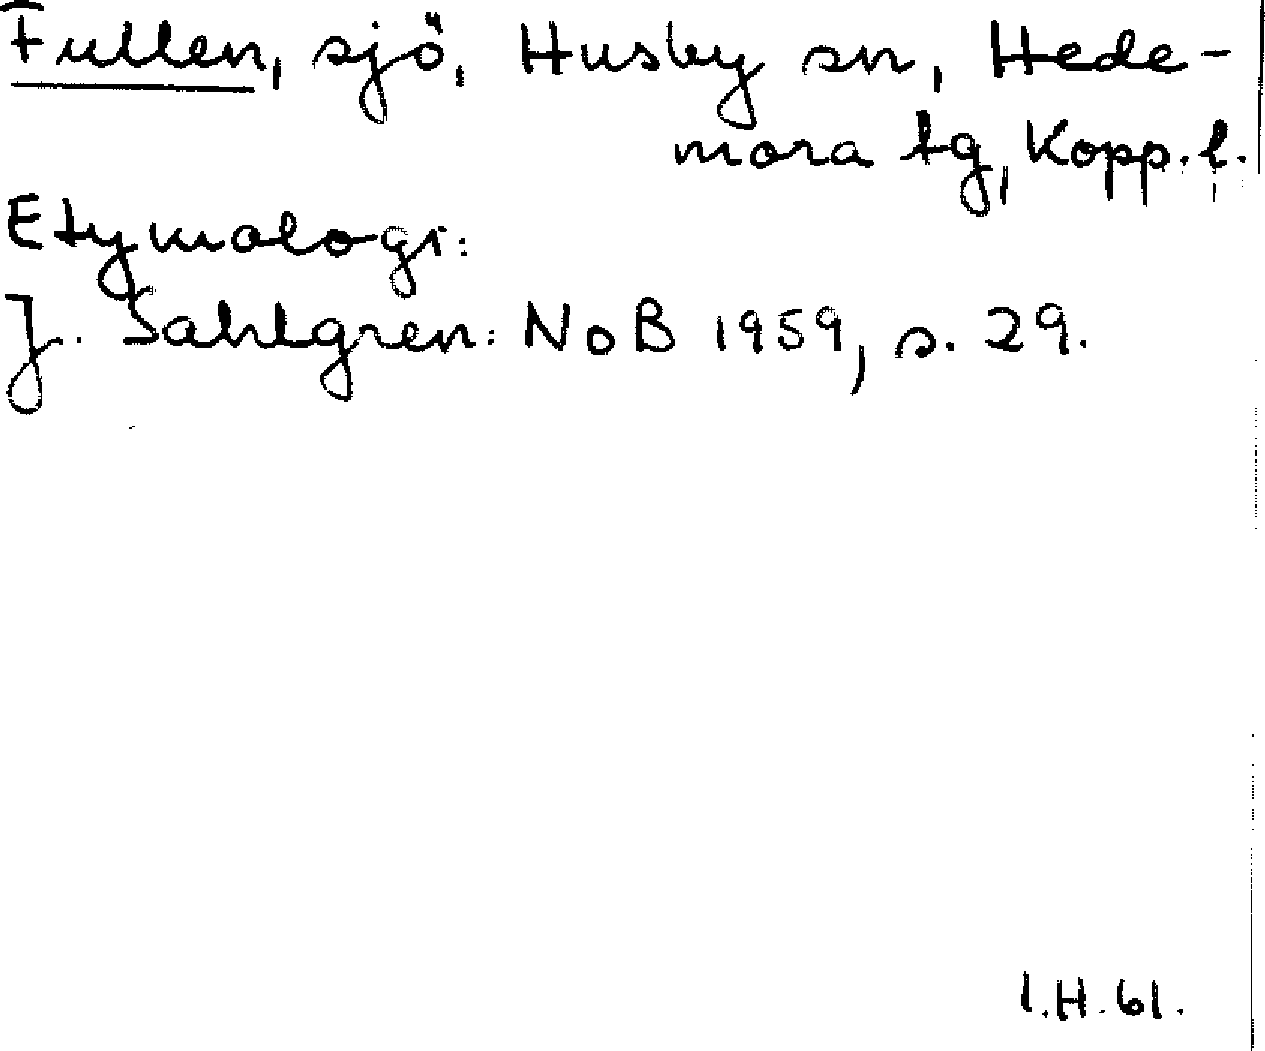 Fullen, sjö, Husby sn, Hede-
mora tg, Kopp. l.
Etymologi:
J. Sahlgren: NoB 1959, s. 29.
I.H. 61.